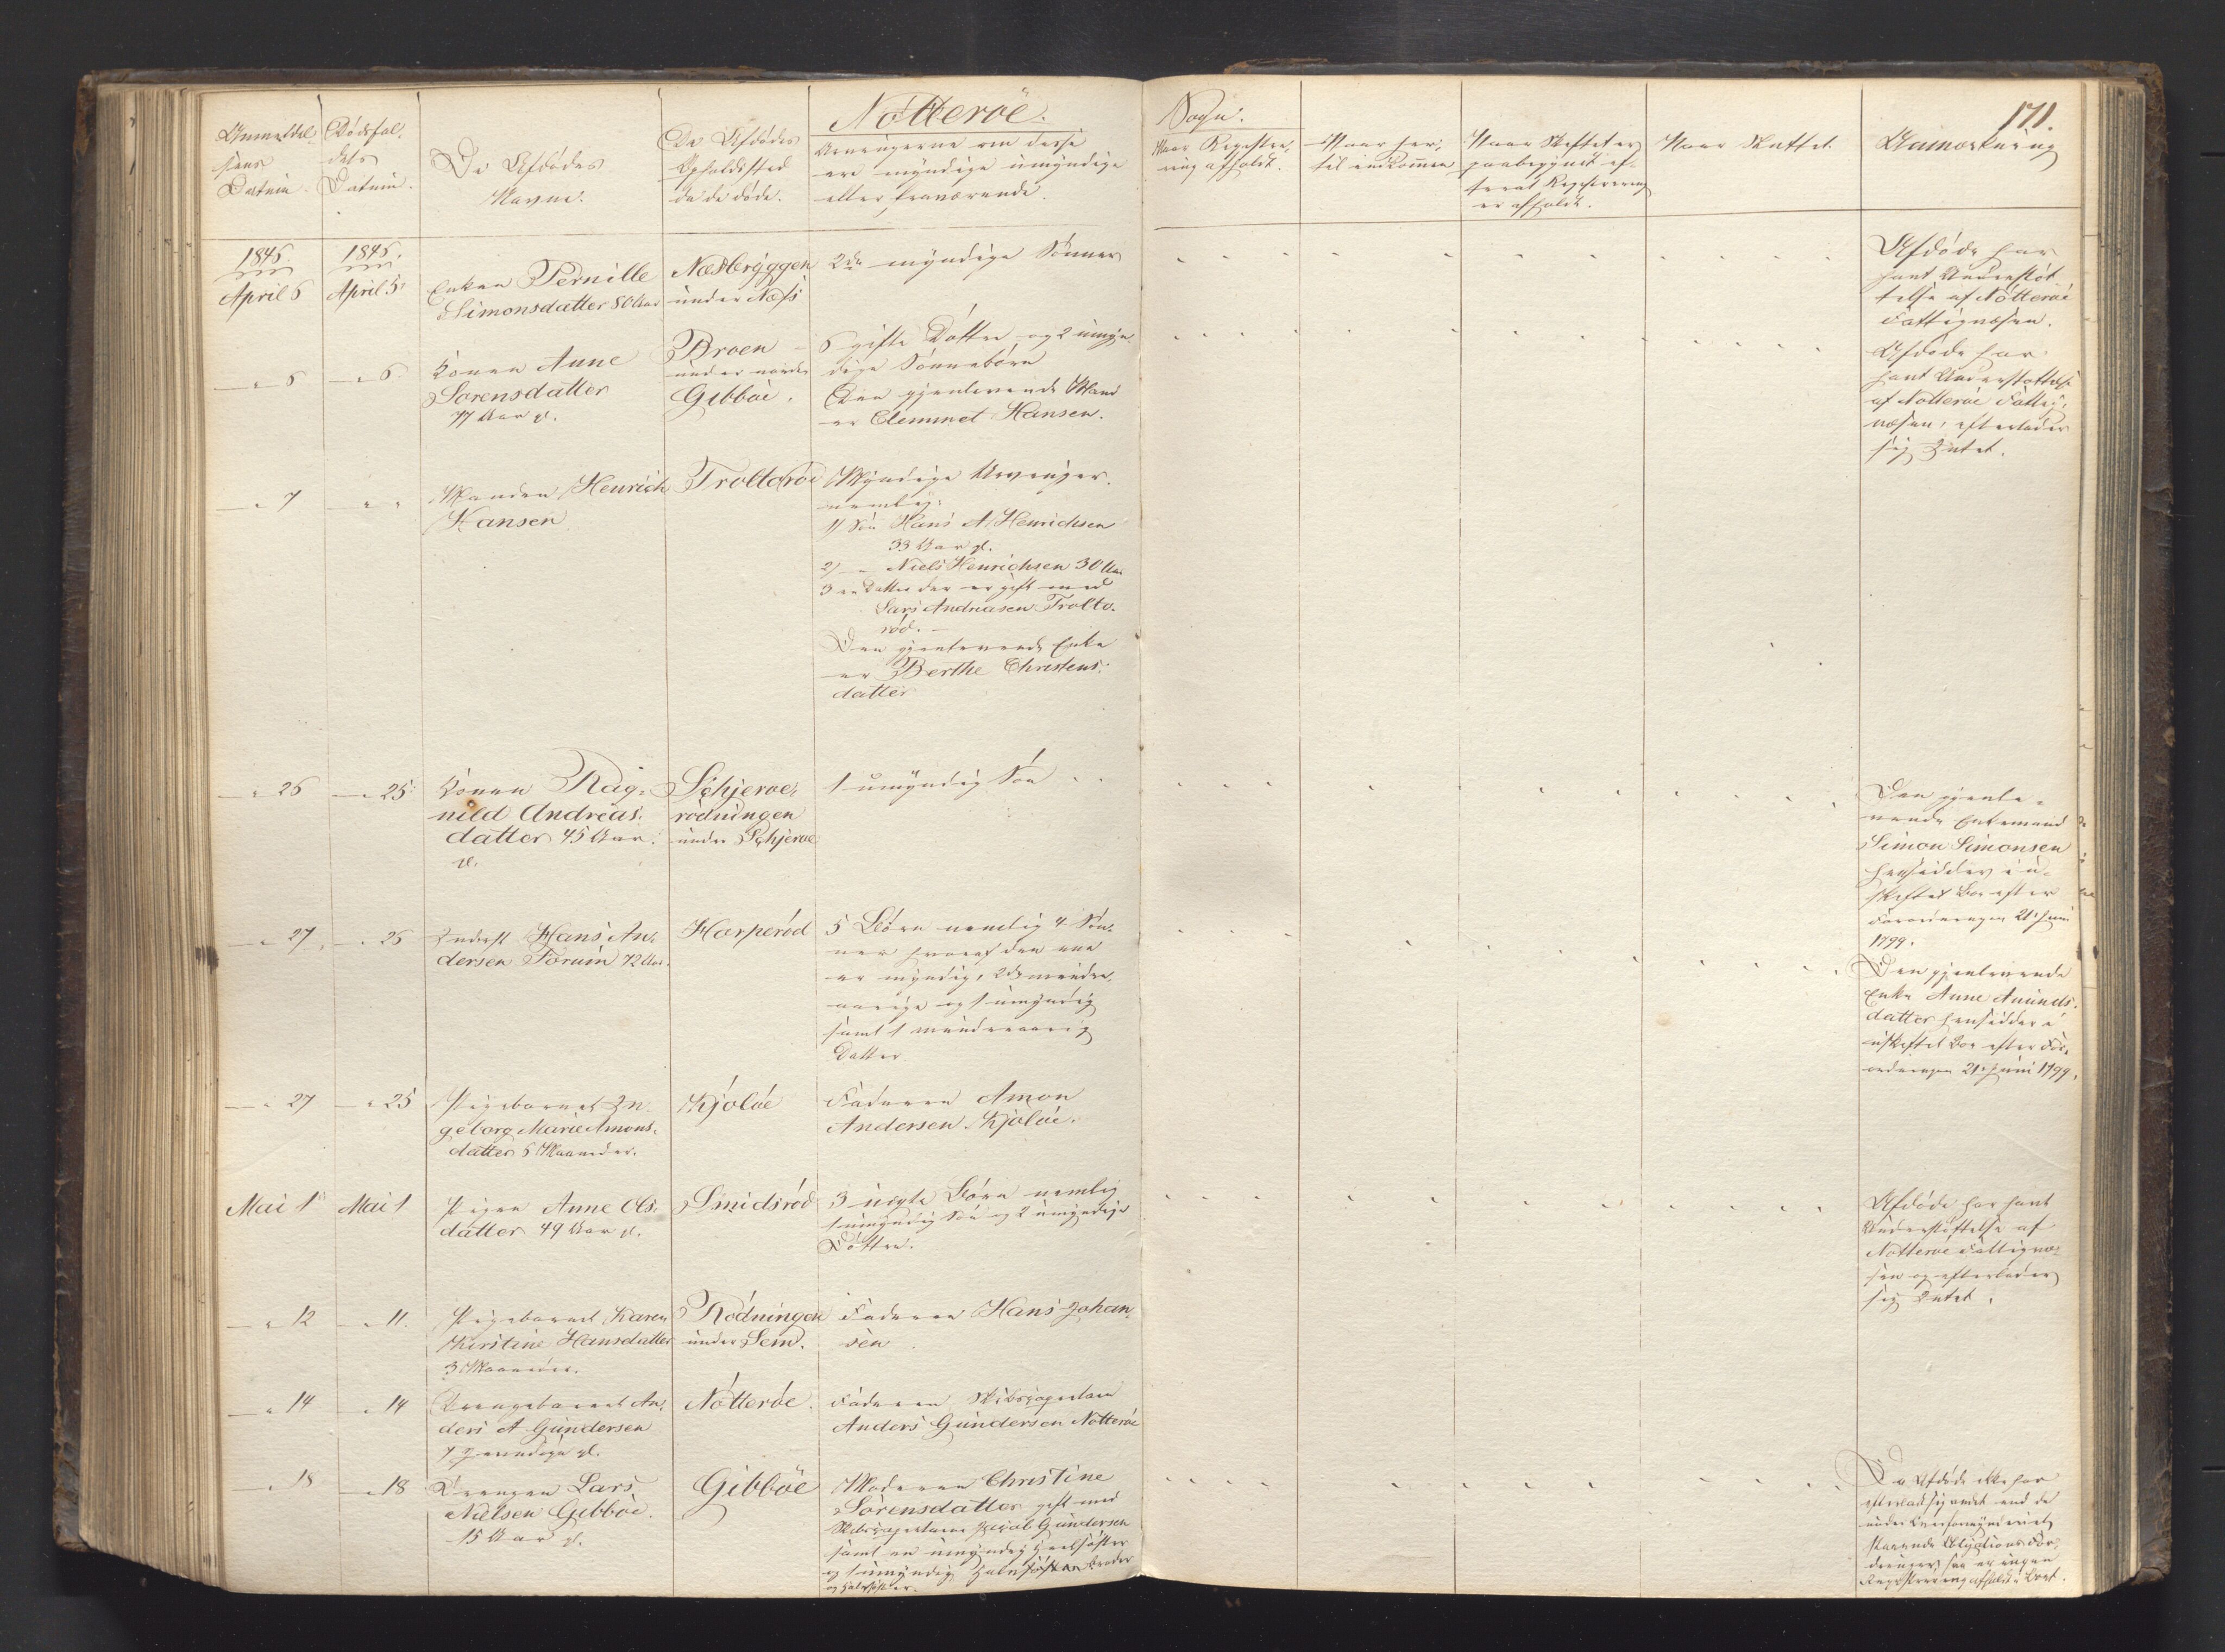 Nøtterøe
Sogn.
171.
Anmeldel-
sens
Datum.
Dødsfal-
dets
Datum.
De Afdødes
Navne.
De Afdødes
Opholdssted
da de døde.
Arvingerne om disse
ere myndige umyndige
eller fraværende.
Naar Registre-
ring afholdt.
Naar her-
til indkommen
Naar Skiftet er
paabegyndt ef-
terat Registrering
er afholdt.
Naar Sluttet
Anmærkning
1845.
April 6
1845.
April 5
Enken Pernille
Simonsdatter 80 Aar
Næsbryggen
under Næss
2de myndige Sønner
Afdøde har
havt Understøt-
telse af Nøtterøe
Fattigvæsen.
" 6
" 6
Konen Anne
Sørensdatter
77 Aar gl.
Broen
under nordre
Gibbøe.
6 gifte Døttre og 2 umyn-
dige Sønnebørn
Den gjenlevende Mand
er Clemmet Hansen.
Afdøde har
havt Understøttelse
af Nøtterøe Fattig-
væsen, efterlader
sig Intet.
" 7
" "
Manden Henrich
Hansen
Troltørød
Myndige Arvinger.
nemlig:
1) Søn Hans A. Henrichsen
33 Aar gl.
2) " Niels Henrichsen 30 Aar
3 en Datter der er gift med
Lars Andreasen Trolte-
rød.
Den gjenlevende Enke
er Berthe Christens-
datter
" 26
" 25
Konen Rag-
nild Andreas-
datter 45 Aar
gl.
Schjeroe-
rødningen
under Schjeroe
1 umyndig Søn
Den gjenle-
vende Enkemand
Simon Simonsen
hensidder i u-
skiftet Boe efter
Forordningen 21 Juni
1799.
" 27
" 26
Inderst Hans An-
dersen Forum 72 Aar
Harperød
5 Børn nemlig 4 Søn-
ner hvoraf den ene
er myndig, 2de mindre-
aarige og 1 umyndig
samt 1 mindreaarig
Datter
Den gjenlevende
Enke Anne Amunds-
datter hensidder i
uskiftet Boe efter For-
ordningen 21 Juni 1799.
" 27
" 25
Pigebarnet In-
geborg Marie Amons-
datter 5 Maaneder.
Kjøløe
Faderen Amon
Andersen Kjøløe.
Mai 1
Mai 1
Pigen Anne Ols-
datter 49 Aar gl.
Smidsrød
3 uægte Børn nemlig
1 umyndig Søn og 2 umyndige
Døttre.
Afdøde har havt
Understøttelse af
Nøtterøe Fattigvæ-
sen og efterlader
sig Intet.
" 12
" 11.
Pigebarnet Karen
Kirstine Hansdatter
3 Maaneder.
Rødningen
under Sem.
Faderen Hans Johan-
sen
" 14
" 14
Drengebarnet An-
ders A Gundersen
gl.
Nøtterøe.
Faderen Skibscapitain
Anders Gundersen Nøtterøe
" 18
" 18
Drengen Lars
Nielsen Gibbøe.
15 Aar gl.
Gibbøe
Moderen Christine
Sørensdatter gift med
Skibscapitaine Jacob Gundersen
samt en umyndig Heelsøster
og 1 umyndig Halv broder
og Halvsøster.
Da Afdøde ikke har
efterladt sig andet end de
under Overformynderiet
staaende Obligations For-
dringer, saa er ingen
Registrering afholdt i Boet.